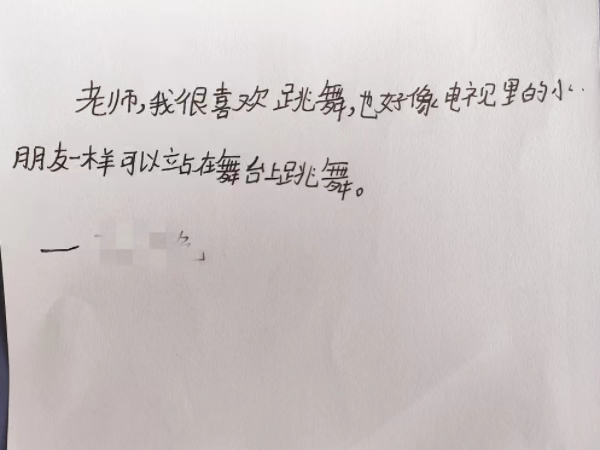 老师,我很喜欢跳舞,也好像电视里的小
朋友一样可以站在舞台上跳舞。
一